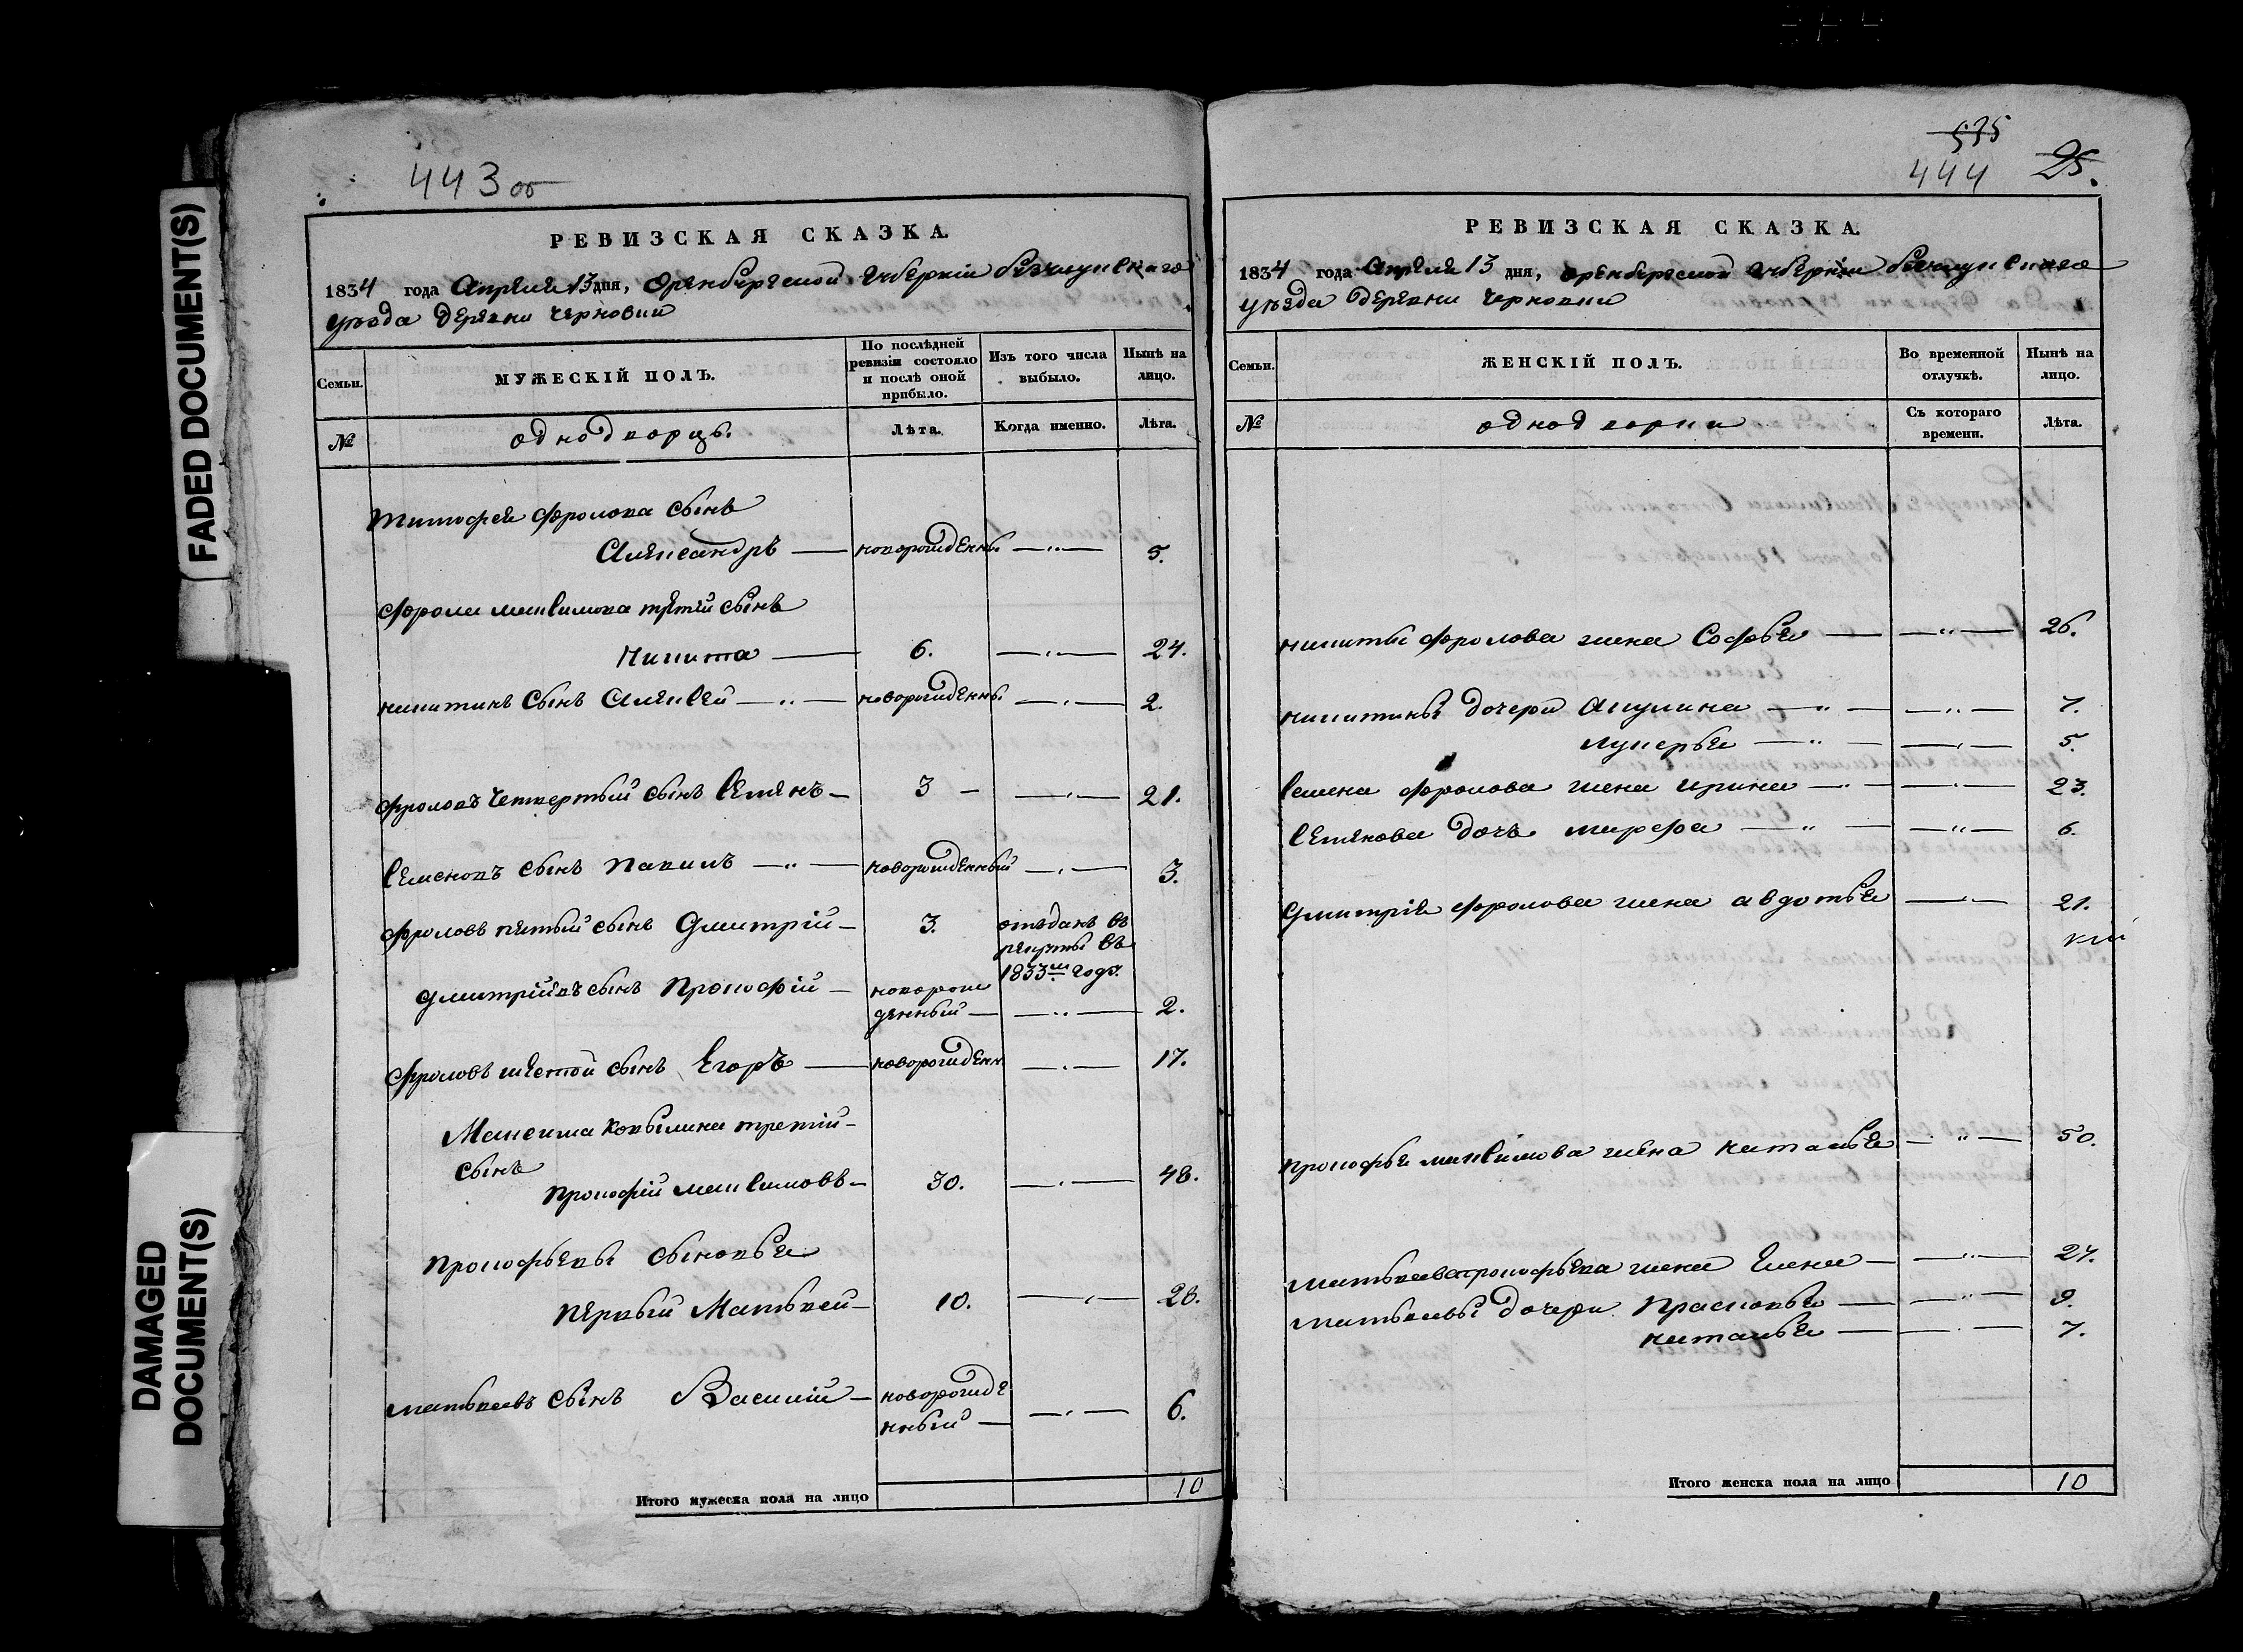 FADED DOCUMENT(S)
DAMAGED
DOCUMENT(S)
443 об
РЕВИЗСКАЯ СКАЗКА.
1834 года Апреля 13 дня, Оренбургской губернии Бузулукскаго
уезда деревни Черновки
Семьи.
МУЖЕСКІЙ ПОЛЪ.
По послѣдней ревизіи состояло и послѣ оной прибыло.
Изъ того числа выбыло.
Нынѣ на лицо.
№
однодворцъ.
Лѣта.
Когда именно.
Лѣта.
Тимофея Фролова сынъ
Александръ — новорожденны —„— 5.
Фрола Максимова третій сынъ
Никита — 6. —„— 24.
Никитинъ сынъ Алексей —„— новорожденны —„— 2.
Фроловъ четвертый сынъ Семенъ — 3 — —„— 21.
Семеновъ сынъ Павилъ —„— новорожденный —„— 3.
Фроловъ пятый сынъ Дмитрій — 3. отъданъ въ
рекруты въ
1833м году.
Дмитріивъ сынъ Прокофій — новорож
денный — —„— 2.
Фроловъ шестой сынъ Егоръ — новорожденн —„— 17.
Максима Ковылина третій —
сынъ
Прокофій Максимовъ — 30. —„— 48.
Прокофьевы сыновья
первый Матьвей — 10. —„— 28.
Матьвеевъ сынъ Василій — новорожде
нный — —„— 6.
Итого мужеска пола на лицо 10
535
444 25.
РЕВИЗСКАЯ СКАЗКА.
1834 года Апреля 13 дня, Оренбургской губернии Бузулукскаго
уезда деревни Черновки
Семьи.
ЖЕНСКІЙ ПОЛЪ.
Во временной отлучкѣ.
Нынѣ на лицо.
№
однодворки
Съ котораго времени.
Лѣта.
Никиты Фролова жена Софья — —„— 26.
Никитины дочери Акулина —„— —„— 7.
Лукерья —„— —„— 5.
Семена Фролова жена Ирина —„— —„— 23.
Семенова дочь Марфа —„— —„— 6.
Дмитрія Фролова жена Авдотья —„— 21.
Прокофья Максимова жена Наталья —„— 50.
Матьвея Прокофьева жена Елена — —„— 27.
Матьвевы дочери Прасковья — —„— 9.
Наталья — —„— 7.
Итого женска пола на лицо 10